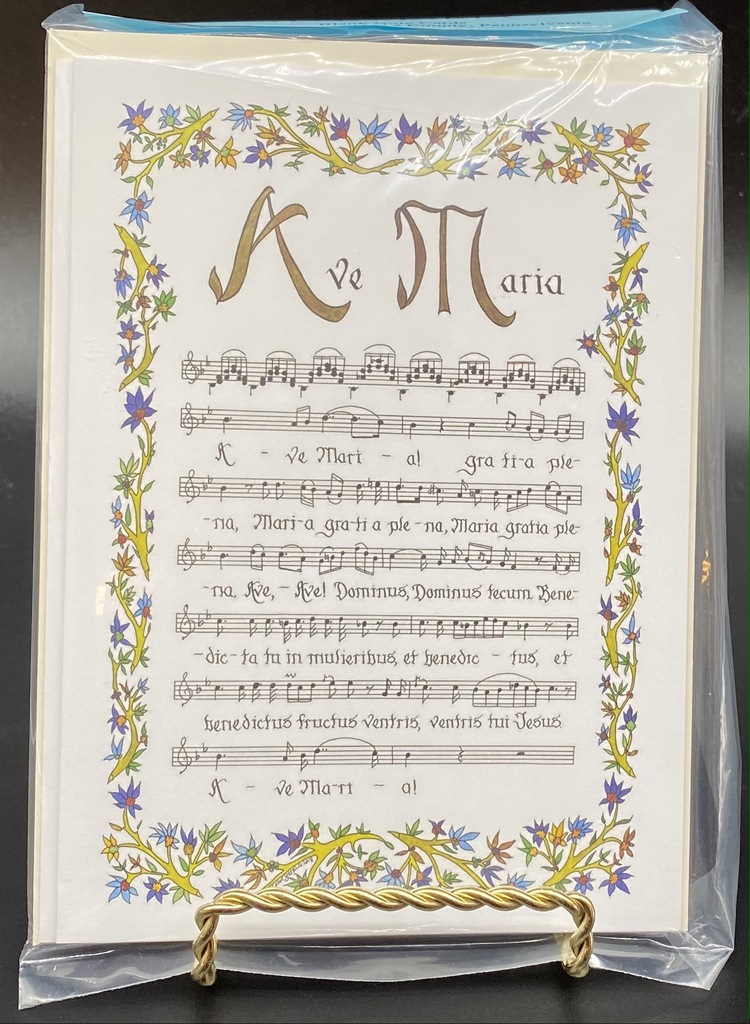 Blank Note Cards
County, Pennsylvania
Ave Maria
A - ve Mari - a! gra ti-a ple-
-na, Mari-a gra-ti a ple-na, Maria gratia ple-
-na, Ave, - Ave! Dominus, Dominus tecum Bene-
-dic-ta tu in mulieribus, et benedic - tus, et
benedictus fructus ventris, ventris tui Jesus
A - ve Ma-ri - a!